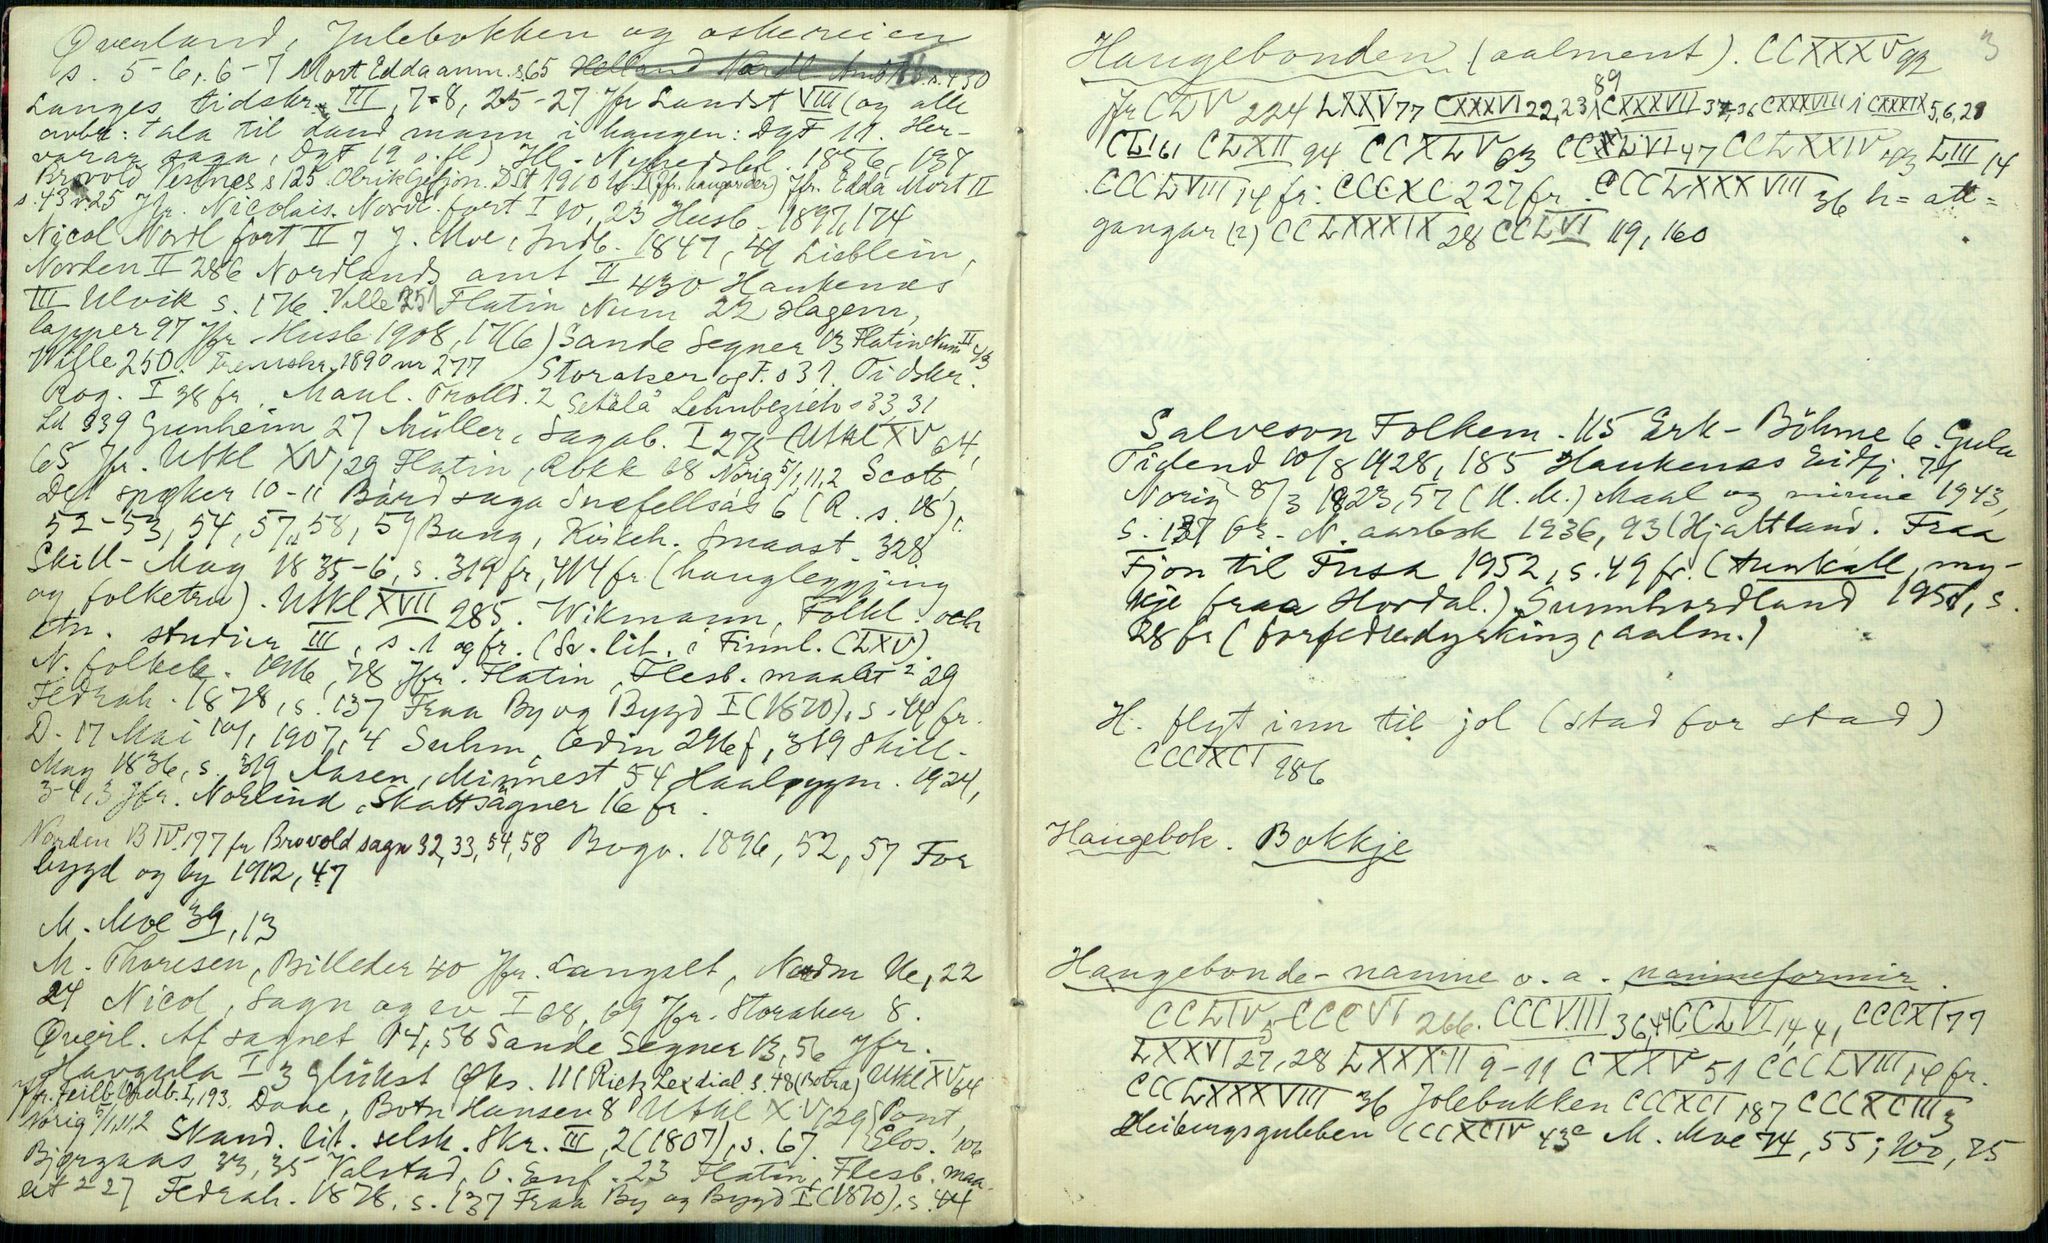 Överland, Julebokken og oskereien
s. 5-6, 6-7 Mort Edda anm. s. 65 Helland Nordl. Amt II s. 430
Langes tidskr. III, 7-8, 25-27 Jfr Landst VIII (og alle
ovbr: tala til daud mann i haugen: DgF 11. Her-
varar saga, DgF 19 o. fl) Ill- Nyhedsbl. 1856, 137
Brovold Vesnes s 125 Olrik Gefjon. DSt 1910 Jfr. Edda Mort II
s. 43 Jfr. Nicolais. Nordl. fort I 10, 23 Husb. 1897, 174
Nicol Nordl fort II 7 J. Moe, Indb. 1847, 49 Lieblein,
Norden II 286 Nordlands amt II 430 Haukenæs
III Ulvik s. 176. Wille 251 Flatin Num 22 Hagem,
lapper 97 Jfr. Husb. 1908, 17(6) Sande Segner 13 Flatin Num II 43
Wille 250. Fremskr. 1890 nr 277 Storaker og F. s 31. Tidskr.
Rog. I 38 fr. Maul. Trolld. 2 Setälä Lehnbezieh s 33, 31
Ld 339 Gunheim 27 Müller, Sagab. I 273 (Utkl XV 64,
65 Jfr. Utkl XV, 29 Flatin, 68 Norig 5/1, 11, 2 Scott,
Det spøker 10-11 Bárd saga Snæfellsás 6 (R. s. 18),
52-53, 54, 57, 58, 59 Bang, Kirkeh. Smaast. 328
Skill-Mag 1835-6, s. 319 fr, 414 fr. (haugleggjing
og folketru). Utkl XVII 285. Wikmann, Folkl. och
etn. studier III, s. 1 og fr. (Sv. lit. i Finnl. (LXV).
N. folkek. 1916, 78 Jfr. Flatin, Flesb. maalet 2 29
Fedrah. 1878, s. 137 Fraa By og Bygd I (1870), s. 44 fr.
D. 17 Mai 10/1 1907, 4 Suhm, Odin 246 f, 319 Skill-
Mag 1836, s. 319 Aasen, Minnest 54 Haalpggm. 1924,
3-4, 3 Jfr. Norlind, Skattsägner 16 fr.
Norden B IV. 177 fr Brovold sagn 32, 33, 54, 58 Bygv. 1896, 52, 57 For
bygd og by 1912, 47
M. Moe 39, 13
M. Thoresen, Billeder 40 Jfr. Langset, Nordm Ue, 22
24 Nicol, Sagn og ev I 68, 69 Jfr. Storaker 8.
Överl. Af sagnet 14, 58 Sande Segner 13, 56 Jfr.
Haugula I 3 Glükst Øks. 11 (Rietz Lex dial s. 48 (Botra) Utkl XV 64
Jfr. Feilb. Ordb. I, 193. Daae, Botn Hansen 8 Utkl XV, 29 Pont,
Norig 5/1, 11, 2 Skand. lit. selsk. Skr. III, 2 (1807), s. 67. Elos. 106
Bjørgaas 33, 35 Valstad, O. Enf. 23 Flatin, Flesb. maa-
let 2 27 Fedrah. 1878, s. 137 Fraa By og Bygd I (1870), s. 44
3
Haugebonden (aalment). CCXXXV 92
Jfr CLV 224 LXXV 77 CXXXVI 22, 23, 89 CXXXVII 37-36 CXXXVIII 1 CXXXIX 5, 6, 21
CLI 61 CLXII 94 CCXLV 63 CCXLVI 47 CCLXXIV 403 LIII 14
CCCLVIII 14 fr. CCCXC 227 fr. CCCLXXXVIII 36 h = att-
gangar (?) CCLXXXIX 28 CCLVI 119, 160
Salveson Folkem. 115 Erk-Böhme 6 Gula
Tidend 10/8 1928, 185 Haukenæs Eidfj. 71
Norig 8/3 1923, 57 (U. M.) Maal og minne 1943,
s. 137 fr. N. aarbok 1936, 93 (Hjaltland. Fraa
Fjon til Fusa 1952, s. 49 fr. (tunkall, my-
kje fraa Hordal.) Sunnhordland 1951, s.
28 fr (forfedredyrking, aalm.)
H. flyt inn til jol (stad for stad)
CCCXCI 186
Haugebok. Bokkje
Haugebonde-namne o. a. namneformir.
CCLIV 5 CCCVI 266. CCCVIII 36, 44 CCLVI, 14, 4, CCCXI 77
LXXVI 27, 28 LXXXII 9-11 CXXV 51 CCCLVIII 14 fr.
CCCLXXXVIII 36 Jolebukken CCCXCI 187 CCCXCIII 3
Heibergsgubben CCCXCIV 43c M. Moe 74, 55; 100, 25